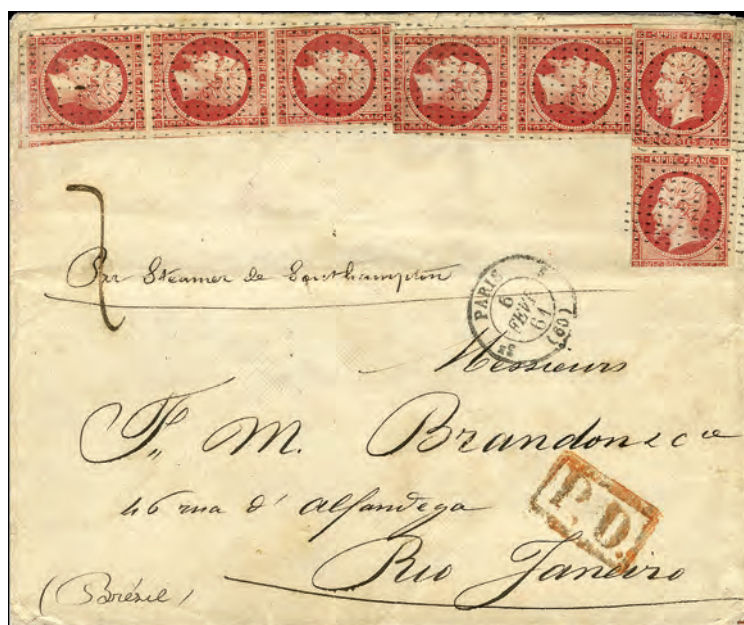 EMPIRE FRANC
EMPIRE FRANC
7
Par Steamer de Southampton
PARIS
6
FEVR
61
(60)
Messieurs
F. M. Brandon & Cie
46 rua d' Alfandega
P.D.
Rio Janeiro
(Brésil)